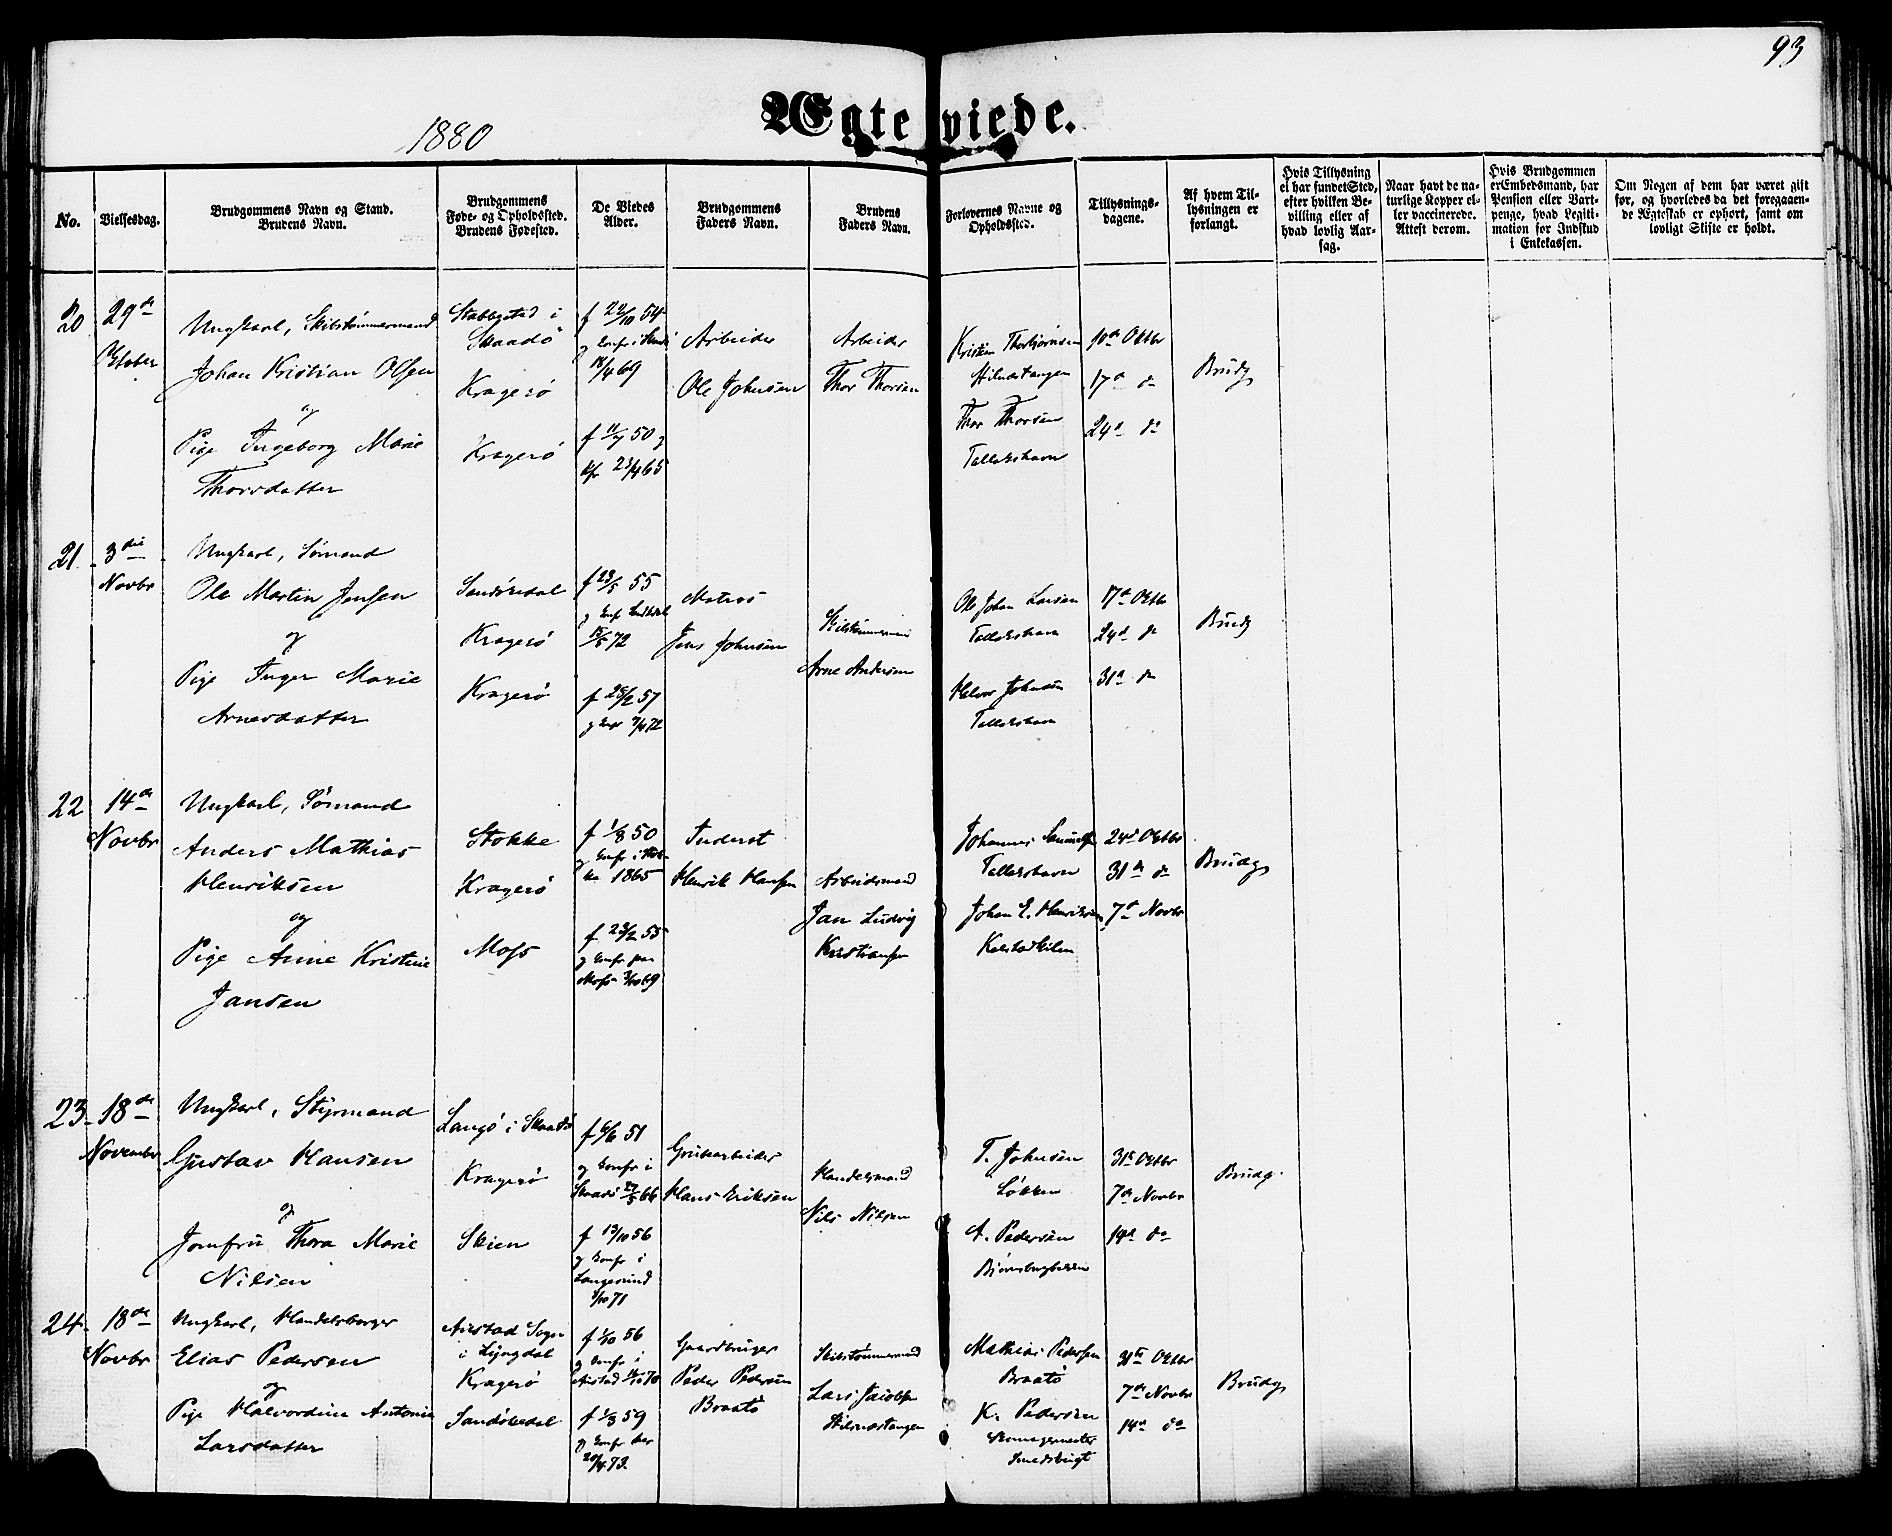 93
Ægteviede.
1880
No.
Vielsesdag.
Brudgommens Navn og Stand.
Brudens Navn.
Brudgommens
Føde- og Opholdssted.
Brudens Fødested.
De Viedes
Alder.
Brudgommens
Faders Navn.
Brudens
Faders Navn.
Forlovernes Navne og
Opholdssted.
Tillysnings-
dagene.
Af hvem Til-
lysningen er
forlangt.
Hvis Tillysning
ei har fundet Sted,
efter hvilken Be-
villing eller af
hvad lovlig Aar-
sag.
Naar havt de na-
turlige Kopper el-
ler vaccinerede.
Attest derom.
Hvis Brudgommen
er Embedsmand, har
Pension eller Vart-
penge, hvad Legiti-
mation for Indskud
i Enkekassen.
Om Nogen af dem har været gift
før, og hvorledes da det foregaaen-
de Ægteskab er ophørt, samt om
lovligt Skifte er holdt.
20
29de
Oktober
Ungkarl, Skibstømmermand
Johan Kristian Olsen
og
Pige Ingeborg Marie
Thorsdatter
Stabbestad i
Skaadø
Kragerø
Kragerø
f 22/10 54
18/4 69
f 11/7 50 og
Kfr 23/4 65
Arbeider
Ole Johnsen
Arbeider
Thor Thorsen
Kristen Thorbjørnsen
Stilnæstangen
Thor Thorsen
Tallakshavn
10de Oktbr
17de do
24de do
Brudg
21
3die
Novbr
Ungkarl, Sømand
Ole Martin Jensen
og
Pige Inger Marie
Arnesdatter
Sandøkedal
Kragerø
Kragerø
f 23/5 55
72
f 25/2 57
og Konf 7/4 72
Matros
Jens Johnsen
Skibstømmermand
Arne Andersen
Ole Johan Larsen
Tallakshavn
Halvor Johnsen
Tallakshavn
17de Oktbr
24de do
31te do
Brudg
22
14de
Novbr
Ungkarl, Sømand
Anders Mathias
Henriksen
og
Pige Anne Kristine
Jansen
Stokke
Kragerø
Moss
f 1/8 50
og Konfr i Stok-
ke 1865
f 23/2 55
og Konfr paa
Moss 3/10 69
Inderst
Henrik Hansen
Arbeidsmand
Jan Ludvig
Kristiansen
Johannes Samuelsen
Tallakshavn
Johan E. Henriksen
Kalstadkilen
24de Oktbr
31te do
7de Novbr
Brudg
23
18de
November
Ungkarl, Styrmand
Gustav Hansen
og
Jomfru Thora Marie
Nilsen
Langø i Skaadø
Kragerø
Skien
f 6/6 51
og Konfr i
Skaadø 27/5 66
f 13/10 56
og Konfr i
Langesund
1/10 71
Grubearbeider
Hans Eriksen
Handelsmand
Nils Nilsen
T. Johnsen
Løkken
A. Pedersen
31te Oktbr
7de Novbr
14de do
Brudg.
24
18de
Novbr
Ungkarl, Handelsborger
Elias Pedersen
og
Pige Halvordine Antonie
Larsdatter
Austad Sogn
i Lyngdal
Kragerø
Sandøkedal
f 1/10 56
og Konfr i
Austad 70
f 1/3 59
og Konfr her
20/4 73.
Gaardbruger
Peder Pedersen
Braatø
Skibstømmermand
Lars Jacobsen
Stilnæstangen
Mathias Pedersen
Braatø
K. Pedersen
Skomagermester
Smedsbugt
31te Oktbr
7de Novbr
14de do
Brudg